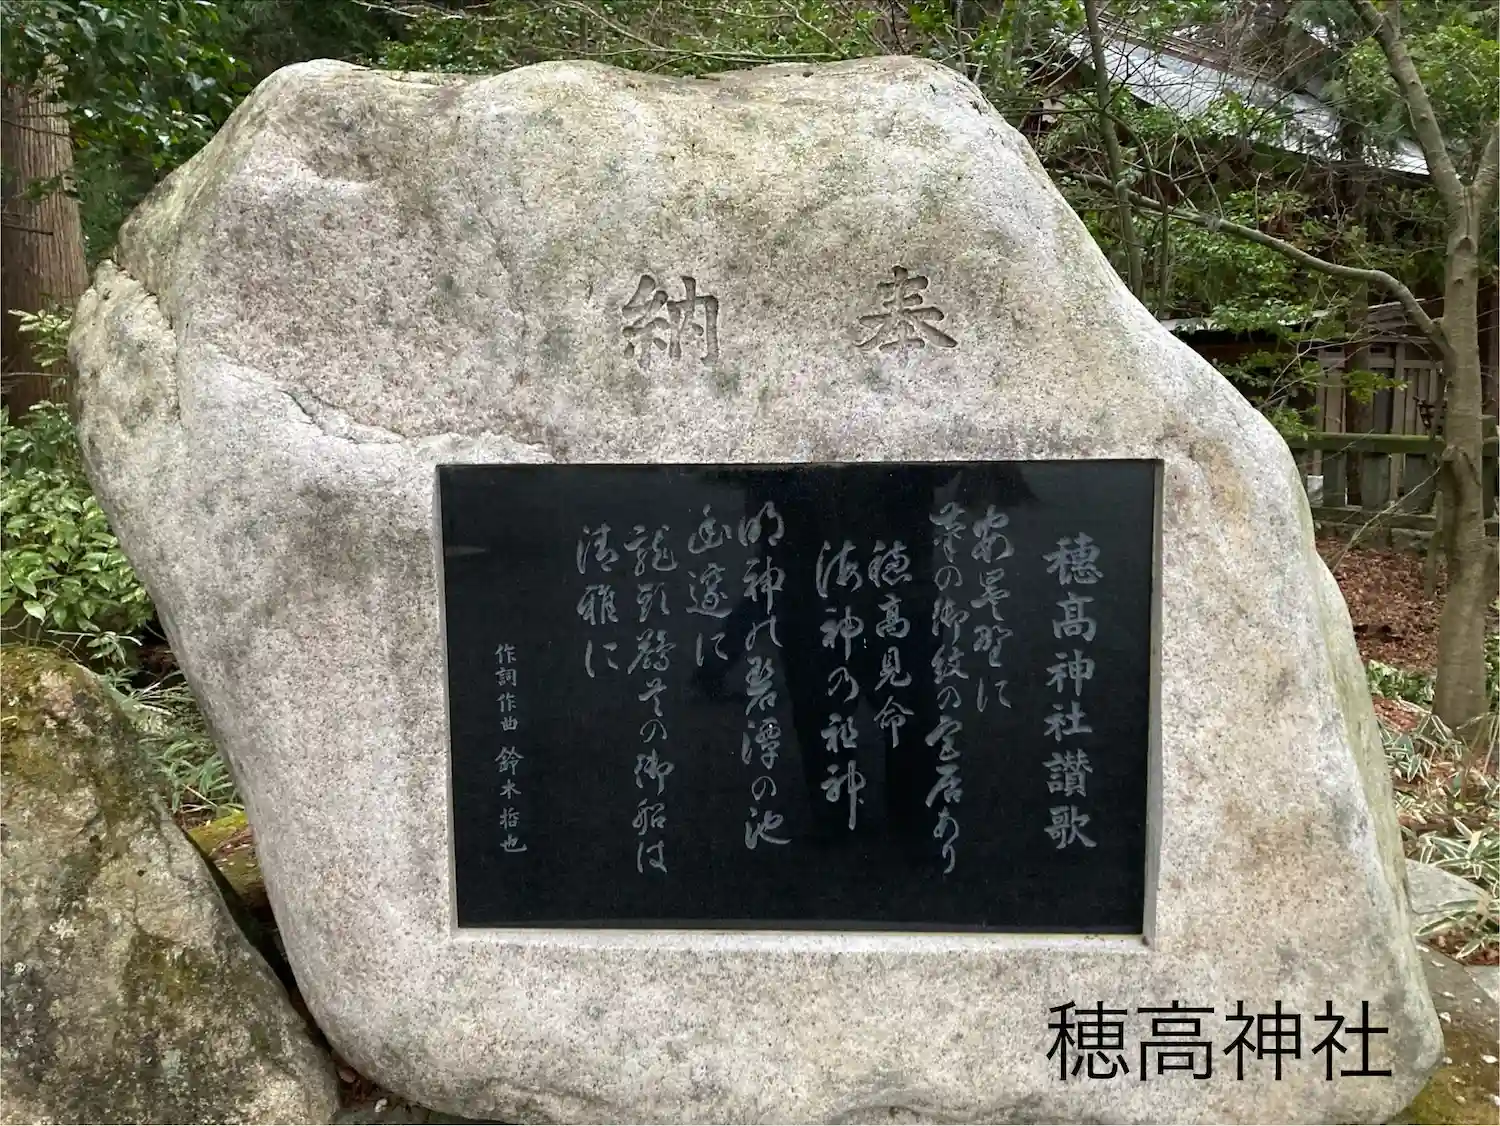 奉納
穂高神社讃歌
安曇野に
葦の御紋の宮居あり
穂高見命
海神の祖神
明神の碧潭の池
幽邃に
龍頭鷁首の御船は
清雅に
作詞作曲 鈴木哲也
穂高神社